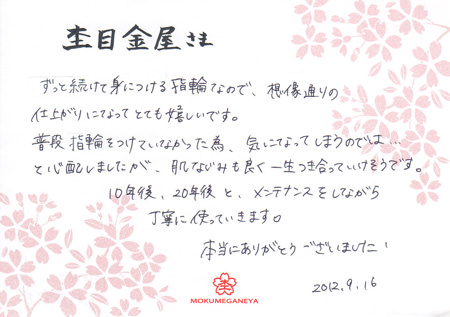 杢目金屋さま
ずっと続けて身につける指輪なので、想像通りの
仕上がりになってとても嬉しいです。
普段指輪をつけていなかった為、気になってしまうのでは…
と心配しましたが、肌なじみも良く一生つき合っていけそうです。
10年後、20年後と、メンテナンスをしながら
丁寧に使っていきます。
本当にありがとうございました!
杢
MOKUMEGANEYA
2012.9.16